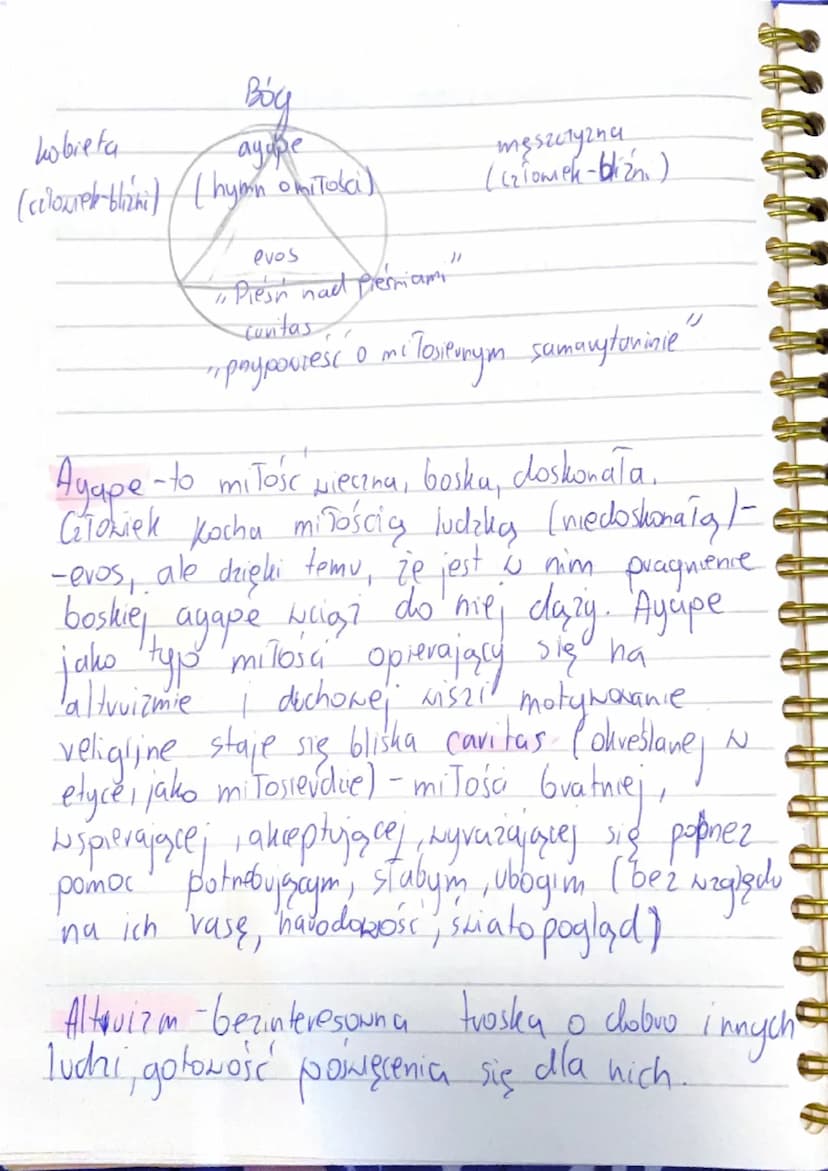 Bóg
kobieta
(człowiek-bliźni)
agape
(hymn o miłości)
męszczyzna
(człowiek-bliźni)
eros
"Pieśń nad Pieśniami"
caritas
"przypowieść o miłosiernym samarytaninie"
Agape - to miłość wieczna, boska, doskonała.
Człowiek kocha miłością ludzką (niedoskonałą) -
- eros, ale dzięki temu, że jest w nim pragnienie
boskiej agape wciąż do niej dąży. Agape
jako typ miłości opierający się na
altruizmie i duchowej więzi motywowanie
religijne staje się bliska caritas (określanej w
etyce, jako miłosierdzie) - miłości bratniej,
wspierającej, akceptującej, wyrażającej się poprzez
pomoc potrzebującym, słabym, ubogim (bez względu
na ich rasę, narodowość, światopogląd)
Altruizm - bezinteresowna troska o dobro innych
ludzi, gotowość poświęcenia się dla nich.